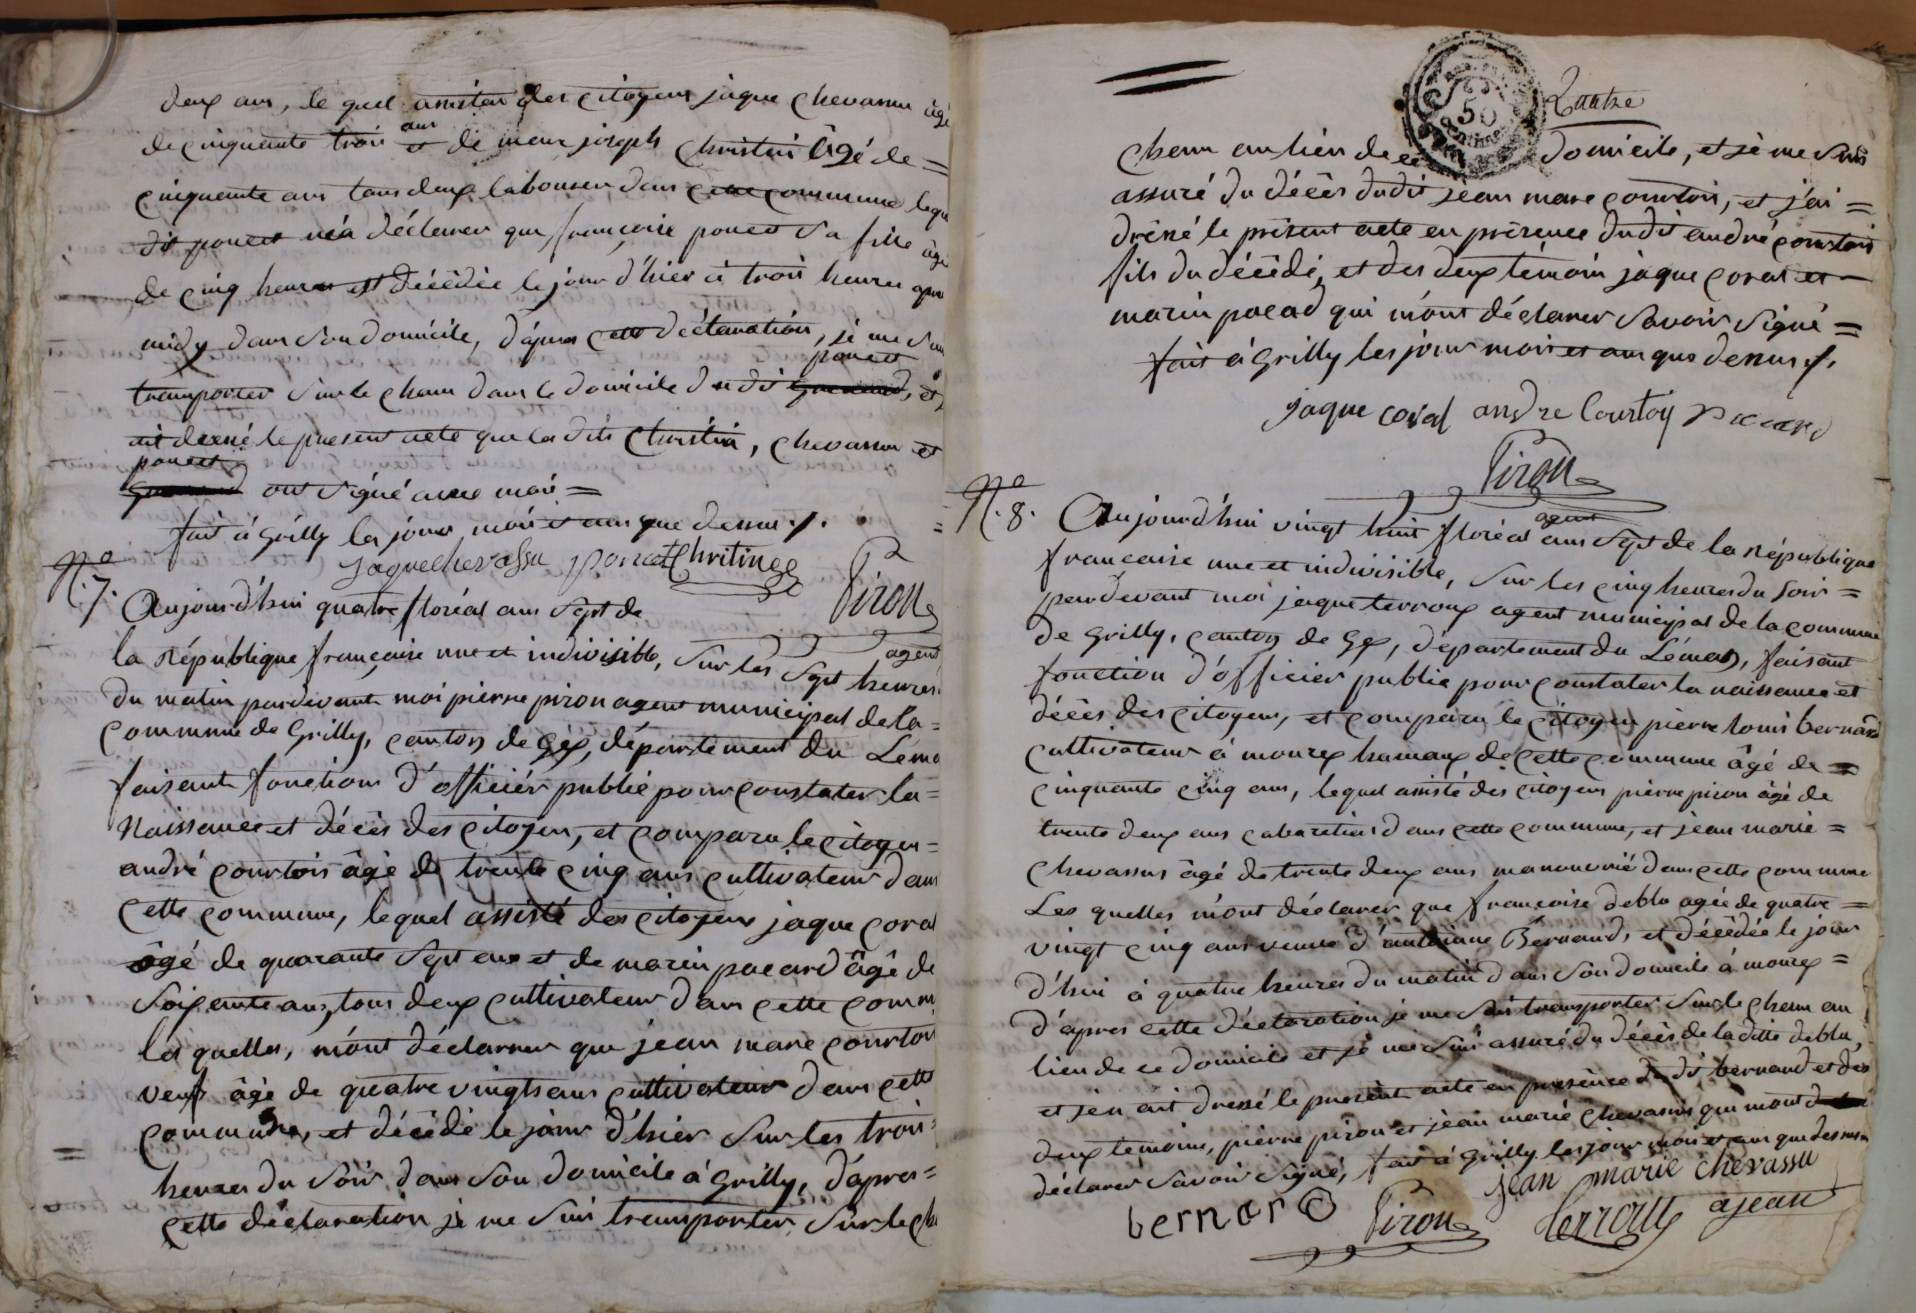 deux ans, le quel assister des citoyens jaque chevassu âgé
de cinquante trois ans et de meur joseph Christin âgé de =
cinquante ans tous deux laboureur dans cette commune lequ
dit poncet m'a déclarer que françoise poncet sa fille âgé
de cinq heures est décédée le jour d'hier à trois heures apre
midy dans son domicile, d'apres cette déclaration, je me suis
transporter sur le cham dans le domicile du dit poncet, et
ait dressé le present acte que la dits Christin, chevassu et
poncet ont signé avec moi =
fait à Grilly les jour mois et ans que dessus ./.
jaque chevassu poncet Chritin
Piron agent
N.º 7. Aujourd'hui quatre floréal ans sept de
la République françoise une et indivisible, sur les sept heures
du matin pardevant moi pierre piron agent municipal de la =
commune de Grilly, canton de Gex, département du Léma
faisant fonction d'officiér public pour constater la =
Naissance et décès des citoyen, et comparu le citoyen =
andré courtois âgé de trente cinq ans cultivateur dans
cette commune, lequel assisté des citoyens jaque coral
âgé de quarante sept ans et de marin pacard âgé de
soixante ans, tous deux cultivateur dans cette comm
la quelles, m'ont déclarer que jean marc courtois
veuf âgé de quatre vingts ans cultivateur dans cette
commune, et décédé le jour d'hier sur les trois =
heures du soir dans son domicile à Grilly, d'apres =
cette déclaration je me suis transporter sur le cha
50 centimes
2 autre
cham au lieu de ce domicile, et je me suis
assuré du décès dudit jean marc courtois, et j'ai =
dréssé le présent acte en présence dudit andré courtois
fils du décédé, et des deux témoin jaque coral et =
marin pacad qui m'ont déclarer savoir signé =
fait à Grilly les jour mois et ans que dessus ./.
jaque coral andre Courtoi pacard
Piron agent
N.º 8. Aujourd'hui vingt huit floréal ans sept de la République
françoise une et indivisible, sur les cinq heures du soir =
pardevant moi jaque terroux agent municipal de la commune
de Grilly, canton de Gex, département du Léman, faisant
fonction d'officier public pour constater la naissance et
décès des citoyens, et comparu le citoyen pierre louis bernard
cultivateur à mourex hamaux de cette commune âgé de =
cinquante cinq ans, lequel assisté des citoyen pierre piron âgé de
trente deux ans cabaretier dans cette commune, et jean marie =
Chevassus âgé de trente deux ans manouvrié dans cette commune
Les quelles m'ont déclarer que françoise deblu agée de quatre =
vingt cinq ans veuve d'antoinne Bernard, et décédée le jour
d'hui à quatre heures du matin dans son domicile à mourex =
d'apres cette déclaration je me suis transporter sur le cham au
lieu de ce domicile et je me suis assuré du décès de la ditte deblu,
et j'en ait dressé le présent acte en présence du dit bernard et des
deux temoins, piérre piron et jean marie chevassus qui m'ont
déclarer savoir signé, fait à Grilly les jour mois et ans que dessus
jean marie chevassu
bernard Piron terroux ajean